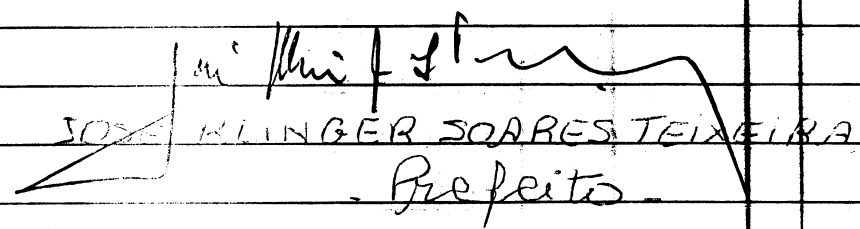 JOSE KLINGER SOARES TEIXEIRA
- Prefeito -